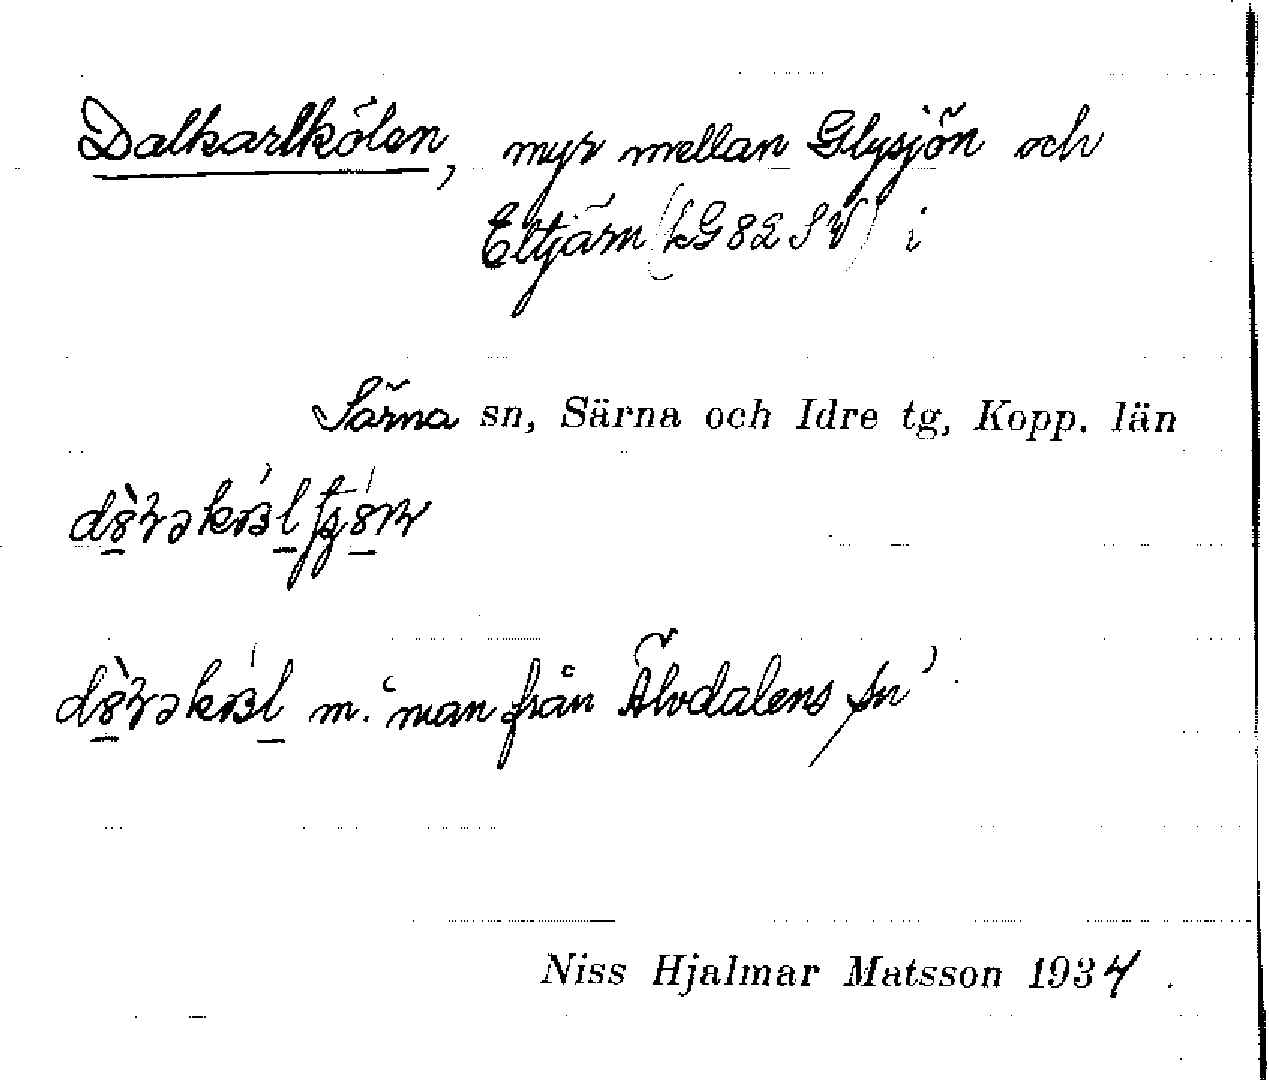 Dalkarlkölen, myr mellan Glysjön och
Eltjärn (kG82SV) i
Särna sn, Särna och Idre tg, Kopp. län
m. 'man från Älvdalens sn'
Niss Hjalmar Matsson 1934